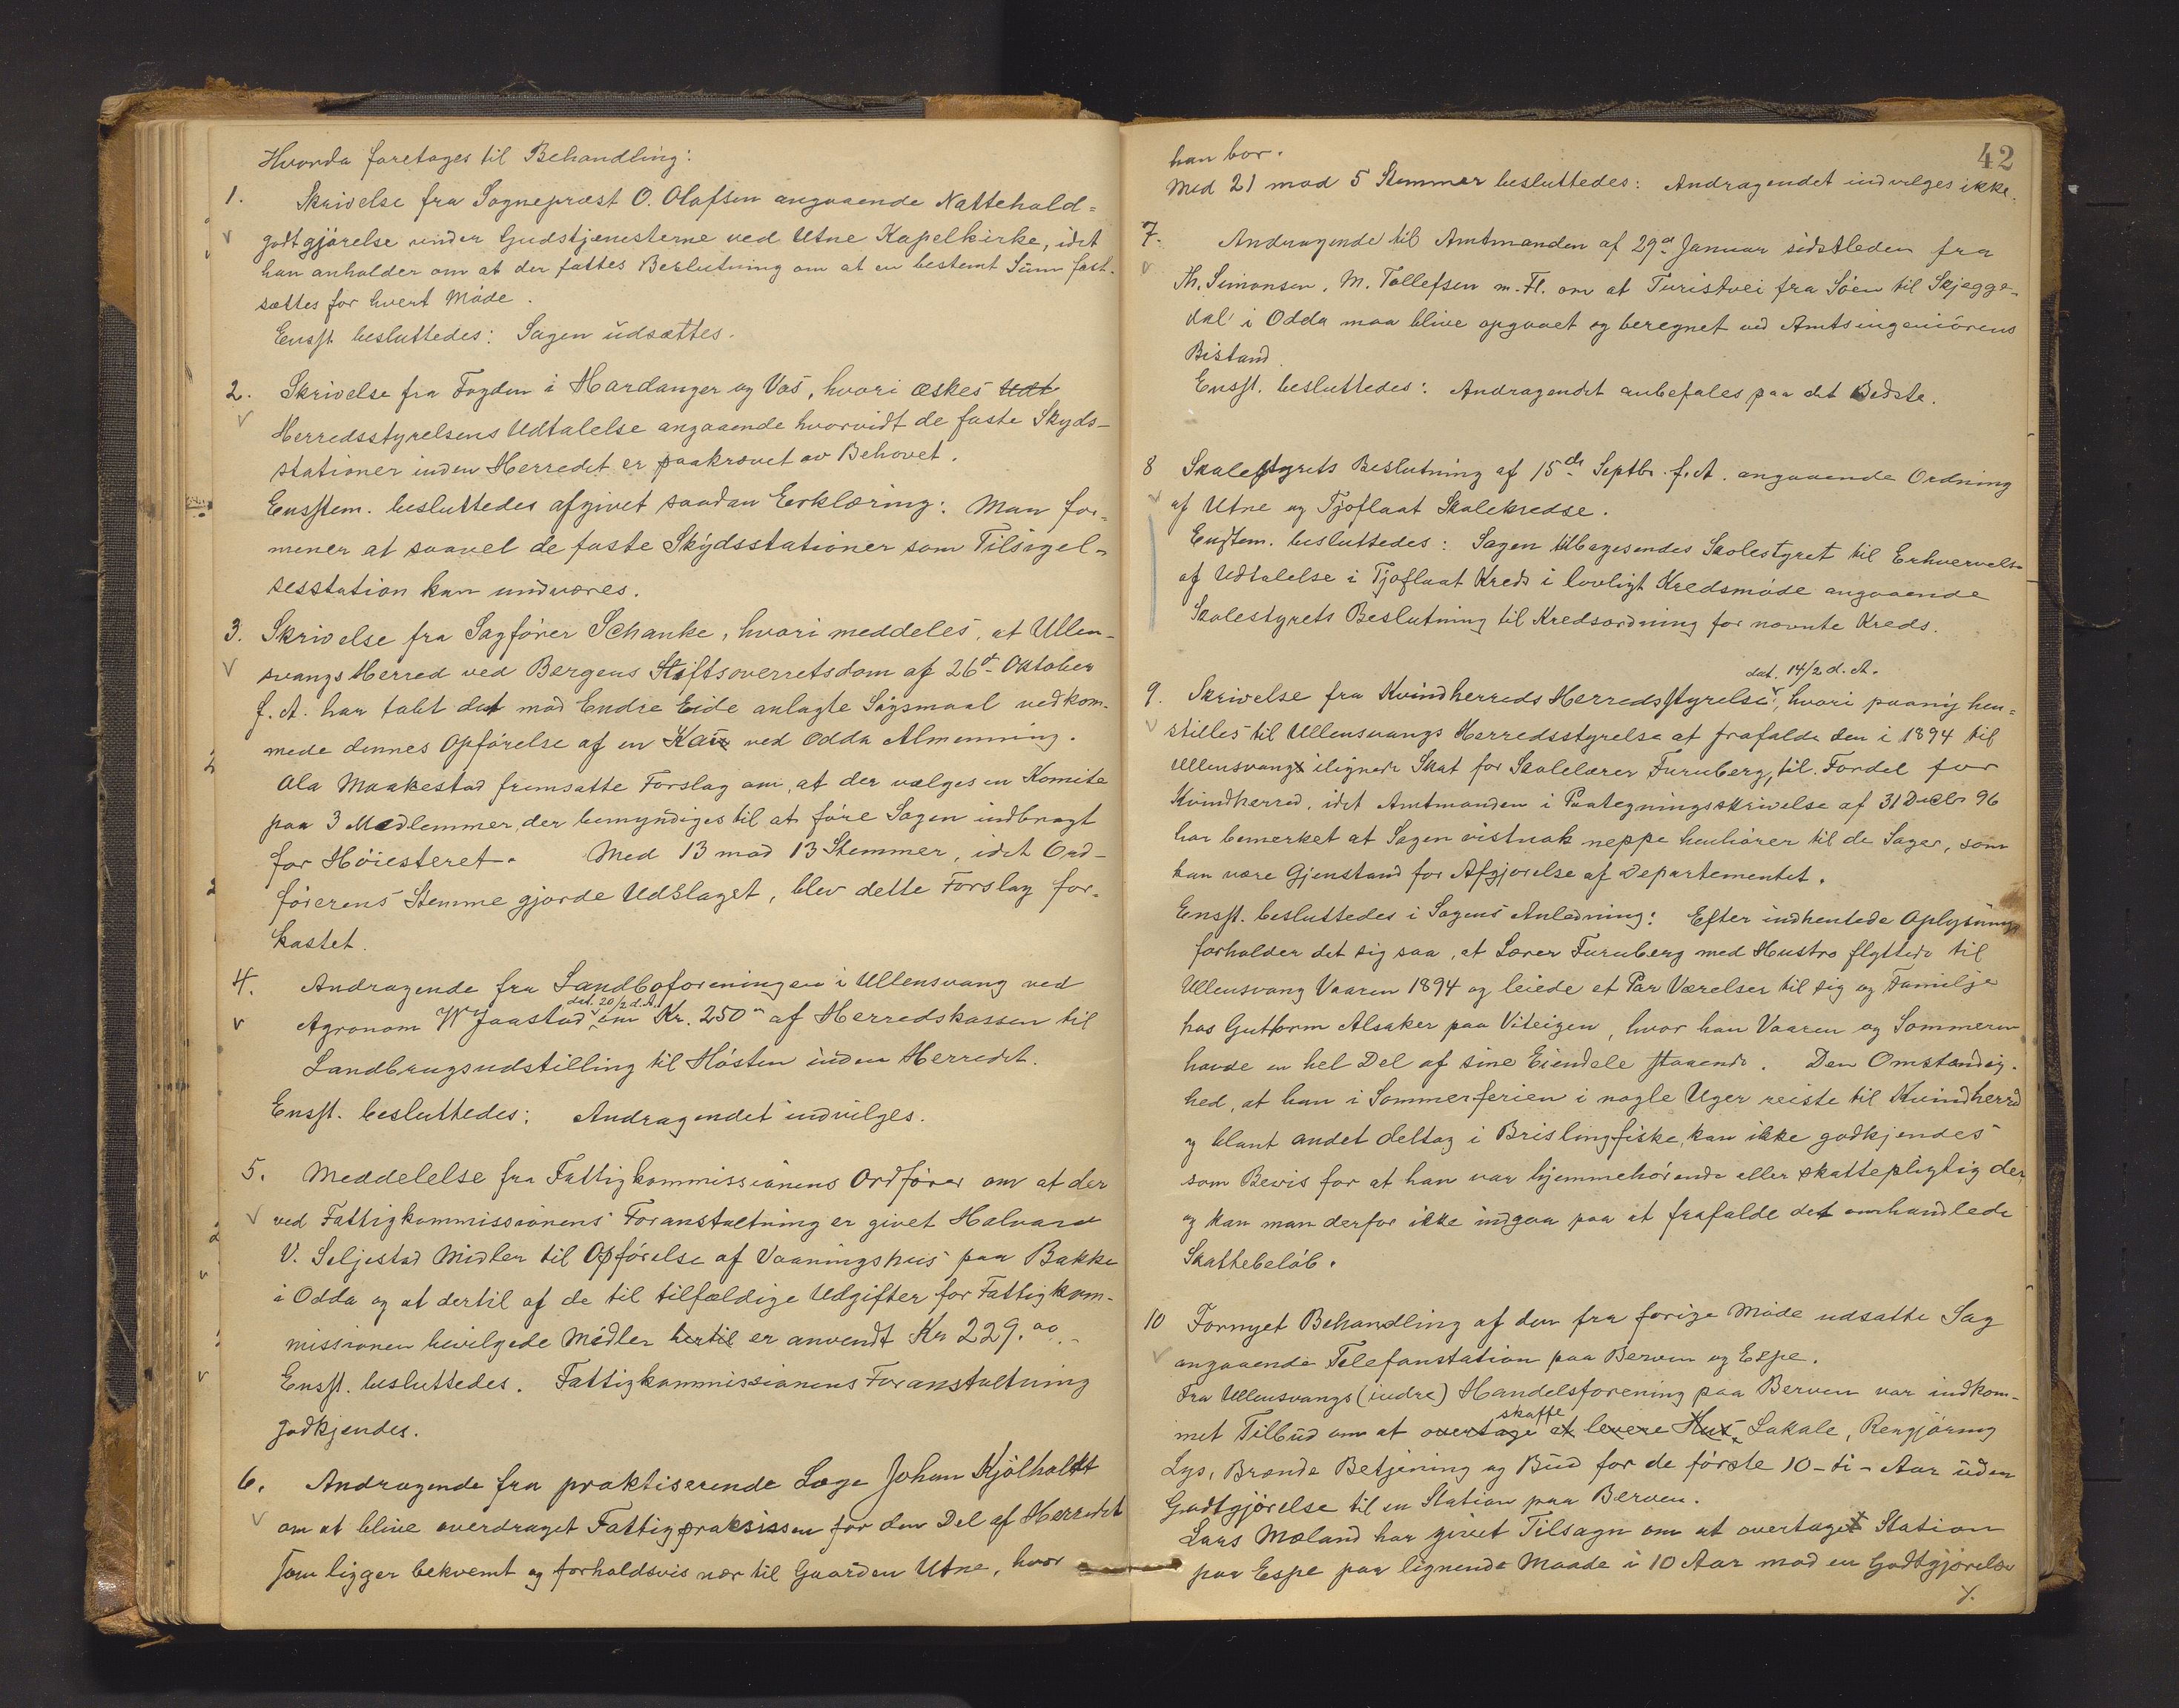 Hvorda foretages til Behandling:
1. Skrivelse fra Sognepræst O. Olafsen angaaende Nattehold-
godtgjörelse under Gudstjenesterne ved Utne Kapelkirke, idet
han anholder om at der fattes Beslutning om at en bestemt Sum fast-
sættes for hvert Möde.
Enst. besluttedes: Sagen udsættes.
2. Skrivelse fra Fogden i Hardanger og Vos, hvori æskes Udt
Herredsstyrelsens Udtalelse angaaende hvorvidt de faste Skyds-
stationer inden Herredet er paakrævet av Behovet.
Enstem. besluttedes afgivet saadan Erklæring: Man for-
mener at saavel de faste Skydsstationer som Tilsigel-
sesstation kan undværes.
3. Skrivelse fra Sagförer Schanke, hvori meddeles, at Ullen-
svangs Herred ved Bergens Stiftsoverretsdom af 26d Oktober
f. A. har tabt det mod Endre Eide anlagte Sögsmaal vedkom-
mede dennes Opförelse af en Kai ved Odda Almenning.
Ola Maakestad fremsatte Forslag om, at der vælges en Komite
paa 3 Medlemmer, der bemyndiges til at före Sagen indbragt
for Höiesteret. Med 13 mod 13 Stemmer, idet Ord-
förerens Stemme gjorde Udslaget, blev dette Forslag for-
kastet.
4. Andragende fra Landboforeningen i Ullensvang ved
dat. 20/2 d.A.
Agronom W Jaastad om Kr. 250 " af Herredskassen til
Landbrugsudstilling til Hösten inden Herredet.
Enst. besluttedes: Andragendet indvilges.
5. Meddelelse fra Fattigkommissionens Ordförer om at der
ved Fattigkommissionens Foranstaltning er givet Halvard
V. Seljestad Midler til Opförelse af Vaaningshus paa Bakke
i Odda og at dertil af de til tilfældige Udgifter for Fattigkom-
missionen bevilgede Midler hertil er anvendt Kr 229.00.
Enst. besluttedes. Fattigkommissionens Foranstaltning
godkjendes.
6. Andragende fra praktiserende Læge Johan Kjölholdt
om at blive overdraget Fattigpraksissen for den Del af Herredet
som ligger bekvemt og forholdsvis nær til Gaarden Utne, hvor
42
han bor.
Med 21 mod 5 Stemmer besluttedes: Andragendet indvilges ikke.
7. Andragende til Amtmanden af 29d Januar sidstleden fra
Th. Simonsen, M. Tollefsen m. Fl. om at Turistvei fra Söen til Skjegge-
dal i Odda maa blive opgaaet og beregnet ved Amtsingeniörens
Bistand.
Enst. besluttedes: Andragendet anbefales paa det Bedste.
8 Skolestyrets Beslutning af 15de Septbr. f. A. angaaende Ordning
af Utne og Tjoflaat Skolekredse.
Enstem. besluttedes: Sagen tilbagesendes Skolestyret til Erhvervelse
af Udtalelse i Tjoflaat Kreds i lovligt Kredsmöde angaaende
Skolestyrets Beslutning til Kredsordning for nævnte Kreds.
dat. 14/2 d. A.
9. Skrivelse fra Kvindherreds Herredsstyrelse, hvori paany hen-
stilles til Ullensvangs Herredsstyrelse at frafalde den i 1894 til
Ullensvang ilignede Skat for Skolelærer Furuberg, til Fordel for
Kvindherred, idet Amtmanden i Paategningsskrivelse af 31 Decbr 96
har bemerket at Sagen vistnok neppe henhører til de Sager, som
kan være Gjenstand for Afgjörelse af Departementet.
Enst. besluttedes i Sagens Anledning: Efter indhentede Oplysning
forholder det sig saa, at Lærer Furuberg med Hustro flyttede til
Ullensvang Vaaren 1894 og leiede et Par Værelser til sig og Familje
hos Guttorm Alsaker paa Viteigen, hvor han Vaaren og Sommeren
havde en hel Del af sine Eiendele staaende. Den Omstændig-
hed, at han i Sommerferien i nogle Uger reiste til Kvindherred
og blant andet deltog i Brislingfiske, kan ikke godkjendes
som Bevis for at han var hjemmehörende eller skattepligtig der,
og kan man derfor ikke indgaa paa at frafalde det omhandlede
Skattebelöb.
10 Fornyet Behandling af den fra forige Möde udsatte Sag
angaaende Telefonstation paa Berven og Espe.
Fra Ullensvangs (indre) Handelsforening paa Berven var indkom-
skaffe
met Tilbud om at overtage at levere Hus, Lokale, Rengjöring
Lys, Brænde Betjening og Bud for de förste 10 - ti - Aar uden
Godtgjörelse til en Station paa Berven.
Lars Mæland har givet Tilsagn om at overtage Station
paa Espe paa lignende Maade i 10 Aar mod en Godtgjörelse